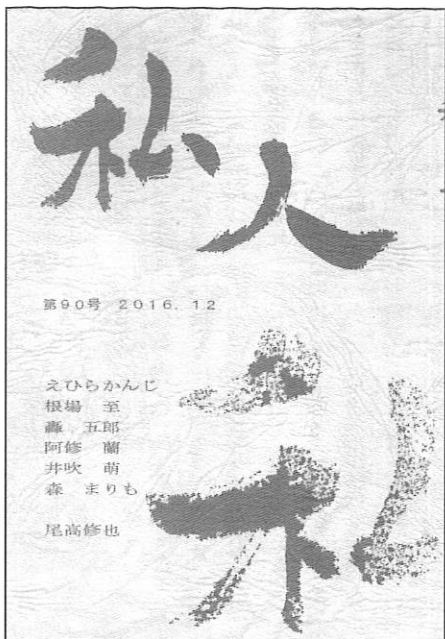 私人
第90号 2016.12
えひらかんじ
根場 至
轟 五郎
阿修 蘭
井吹 萌
森 まりも
尾高修也
私